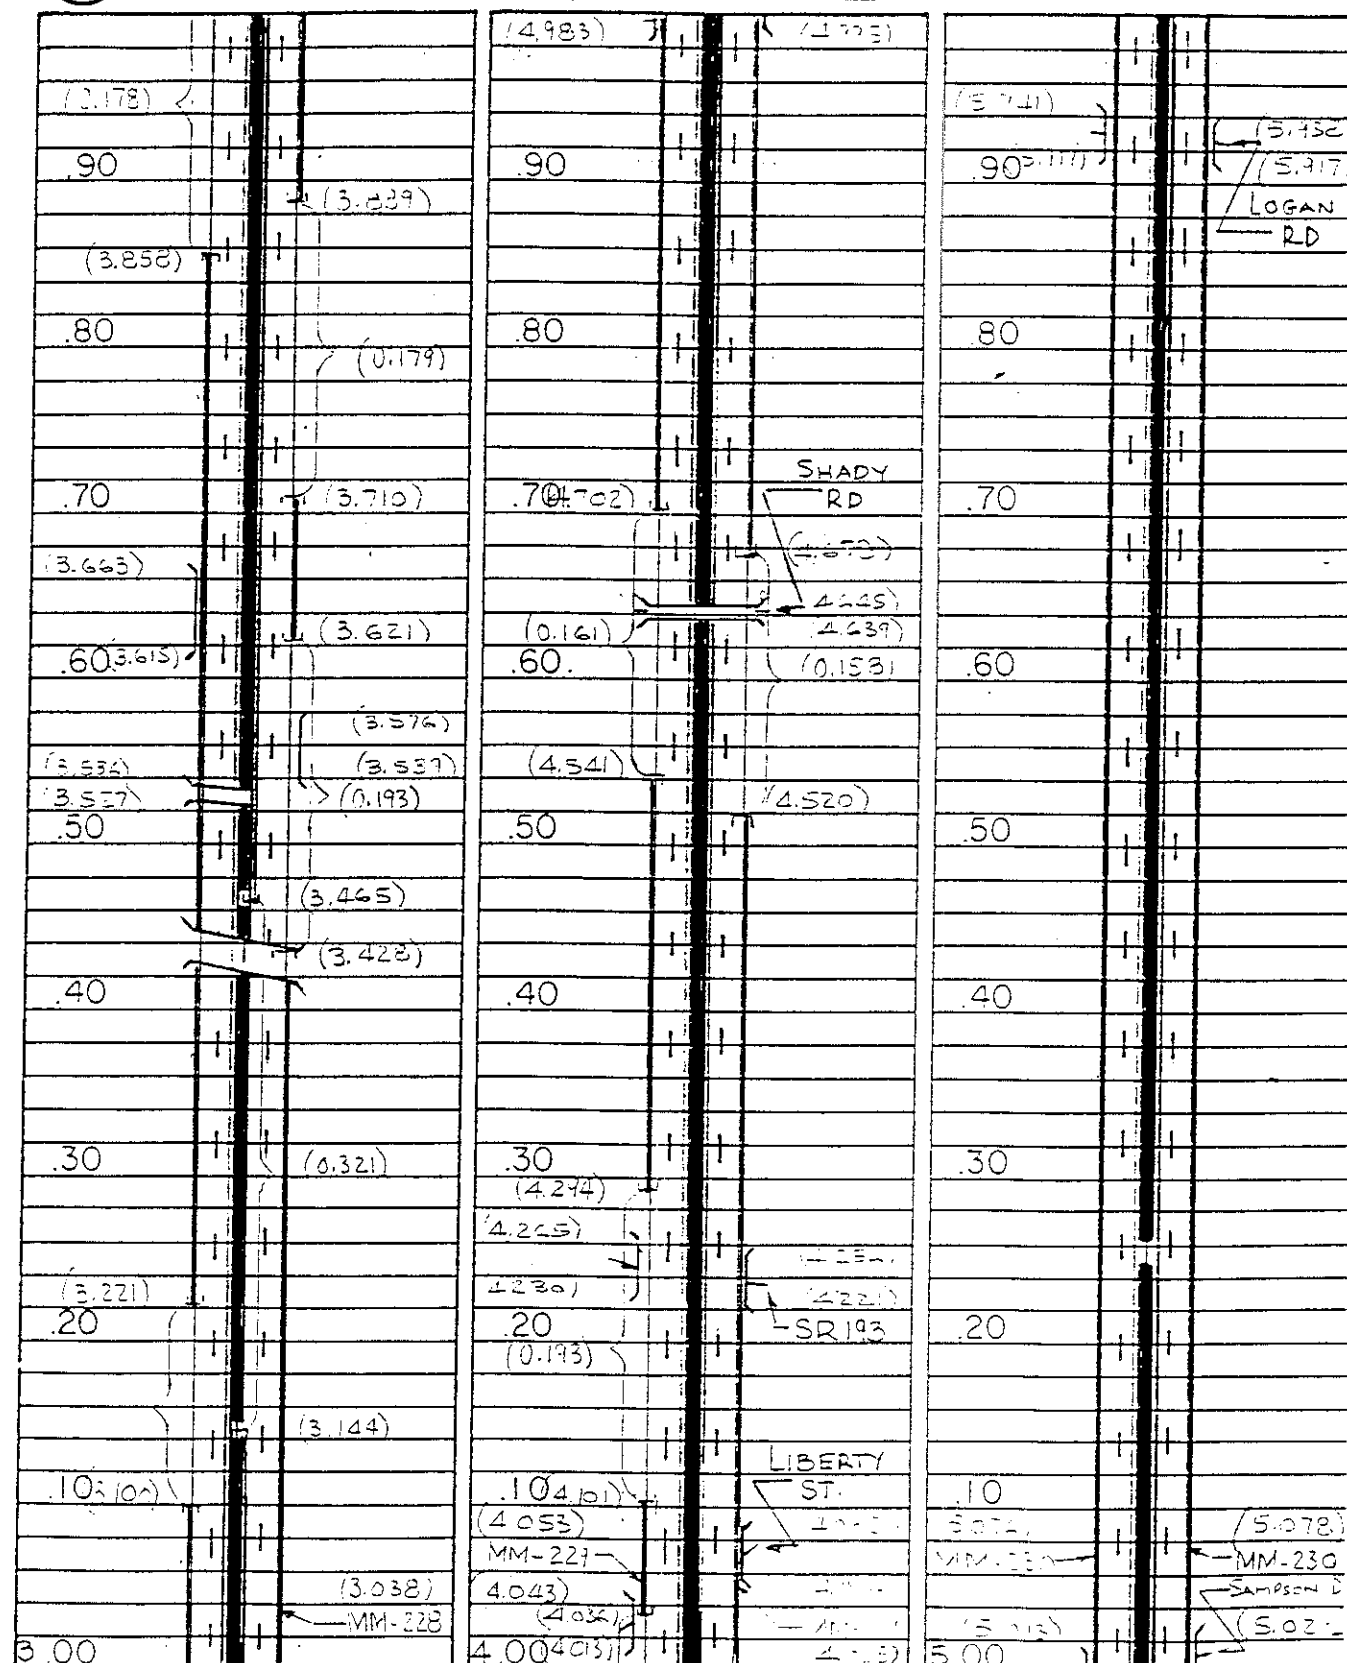 .90
(3.839)
(3.858)
.80
(0.179)
.70
(3.710)
(3.663)
(3.621)
.60
(3.615)
(3.576)
(3.537)
(0.193)
.50
(3.465)
(3.428)
.40
.30
(0.321)
(3.221)
.20
(3.144)
.10
(3.038)
MM-228
3.00
(4.983)
.90
.80
SHADY
RD
.70
(4.639)
(0.161)
.60
(0.153)
(4.541)
(4.520)
.50
.40
.30
(4.294)
(4.265)
4.230)
(4.221)
.20
SR193
(0.193)
LIBERTY
ST.
.10
4.101)
(4.053)
(4.043)
(4.036)
4.00
(4.013)
.90
(5.917)
LOGAN
RD
.80
.70
.60
.50
.40
.30
.20
.10
(5.078)
MM-230
MM-230
SAMPSON
5.00